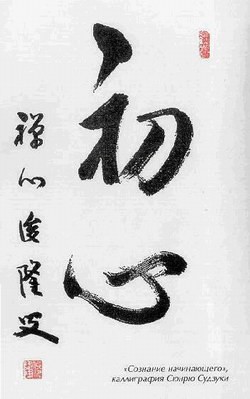 初心
禅心俊隆
«Сознание начинающего»,
каллиграфия Сюнрю Судзуки